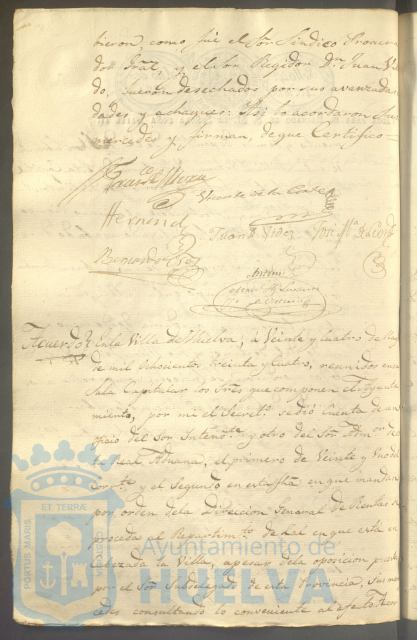 tieron, como fue el Sor Sindico Procura
dor Gral, y el Sor Regidor Dn Juan Vi
do, fueron desechados por sus avanzadas
edades y achaques: Asi lo acordaron sus
mercedes y firman, de que Certifico
Vicente de la Corte
Bernardo
Juan Vides José Ma de la Corte
Acuerdo En la Villa de Huelva, á Veinte y Cuatro de
de mil ochocientos treinta y Cuatro, reunidos en su
Sala Capitular los Sres que componen el Ayunta
miento, por mi el Secreto se dió Cuenta de un
oficio del Sor Intente y otro del Sor Admor de
la Real Aduana, el primero de Veinte y
Corte y el Segundo en esta fha en que mandan
por orden de la Direccion General de Rentas se
proceda al Repartimto de la Sal en que está en
Cabezada la Villa, apesar de la oposicion
por el Sor Subdelegado de esta Provincia, Sus mer
cedes consultando lo conveniente al efecto Acor
PORTUS MARIS
ET TERRAE
CUSTODIA
Ayuntamiento de
HUELVA